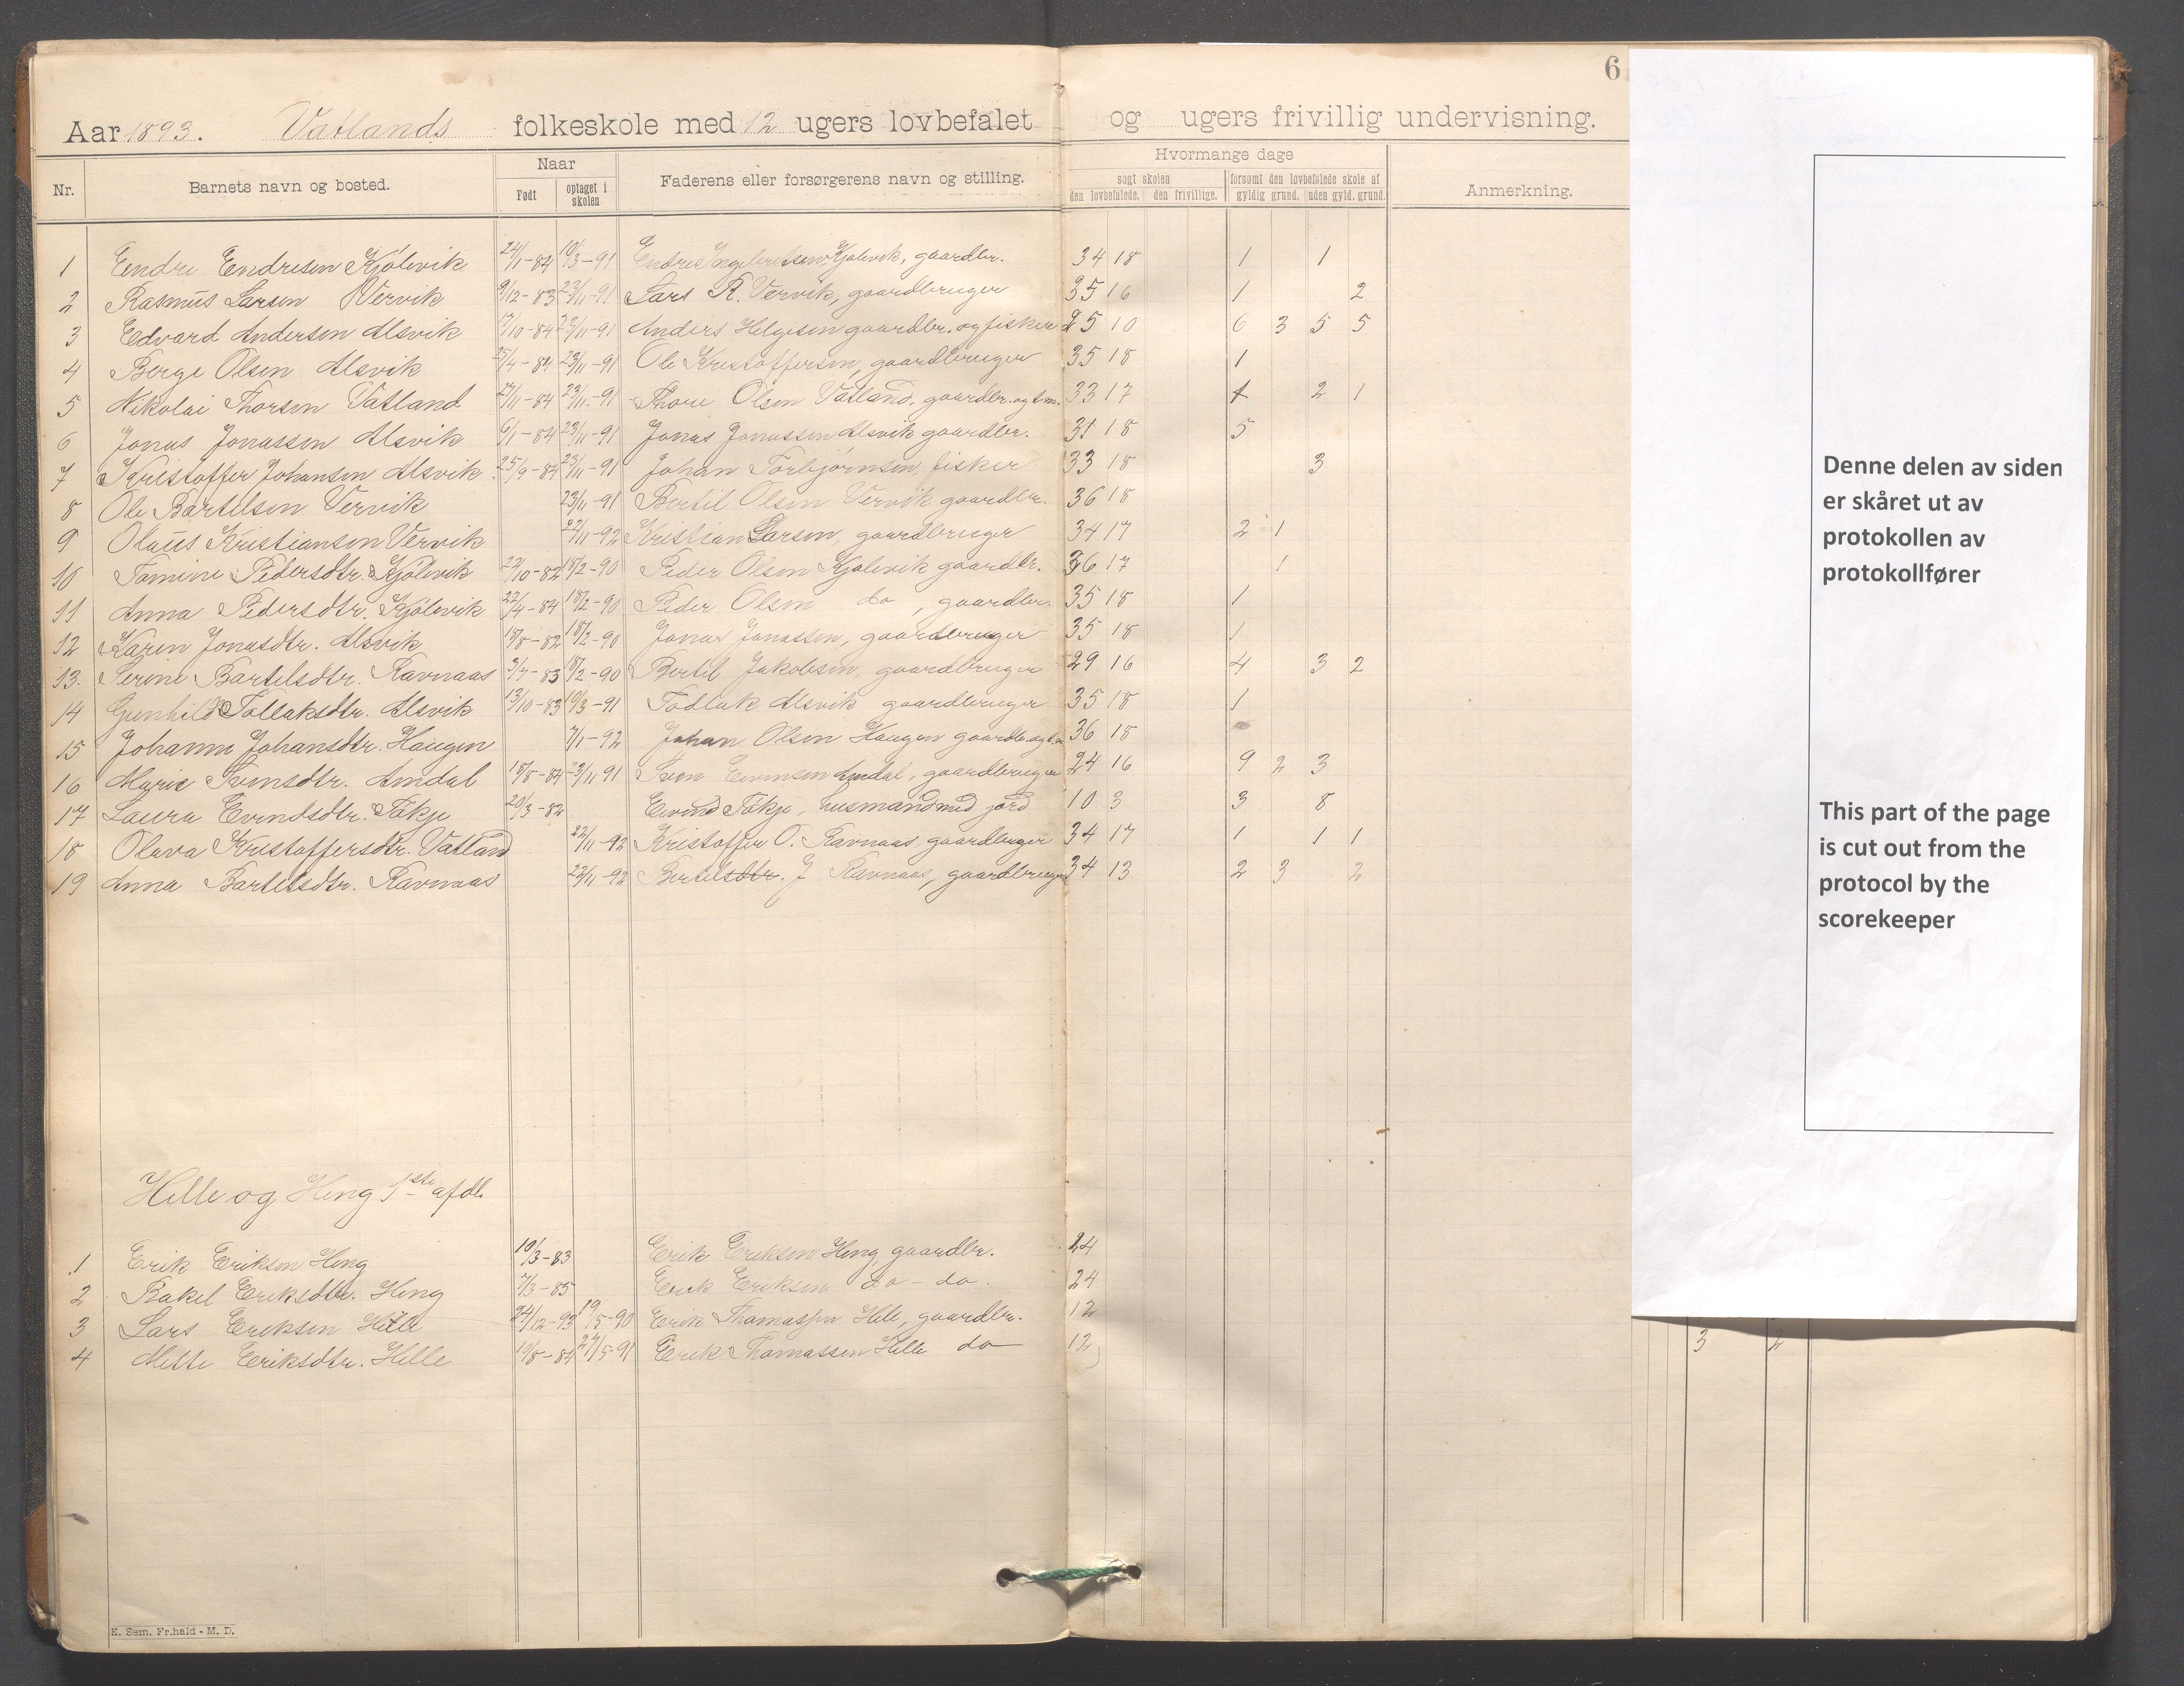 6
Aar 1893. Vatlands folkeskole med 12 ugers lovbefalet og ugers frivillig undervisning.
Nr. Barnets navn og bosted. Naar Født optaget i skolen Faderens eller forsørgerens navn og stilling. Hvormange dage søgt skolen den lovbefalede. den frivillige. forsømt den lovbefalede skole af gyldig grund. uden gyld. grund. Anmerkning.
1 Endre Endresen Kjölevik 24/1-84 10/3-91 Endre Ingebretsen Kjølevik, gaardbr. 34 18 1 1
2 Rasmus Larsen Vervik 9/12-83 23/11-91 Lars R. Vervik, gaardbruger 35 16 1 2
3 Edvard Andersen Alsvik 17/10-84 23/11-91 Anders Helgesen gaardbr. og fisker 25 10 6 3 5 5
4 Berge Olsen Alsvik 25/4-84 23/11-91 Ole Kristoffersen, gaardbruger 35 18 1
5 Nikolai Thorsen Vatland 27/11-84 23/11-91 Thore Olsen Vatland, gaardbr. og 33 17 1 2 1
6 Jonas Jonassen Alsvik 6/1-84 23/11-91 Jonas Jonassen Alsvik gaardbr. 31 18 5
7 Kristoffer Johansen Alsvik 25/9-84 23/11-91 Johan Torbjørnsen, fisker 33 18 3
8 Ole Bartelsen Vervik 23/11-91 Bertel Olsen Vervik gaardbr. 36 18
9 Olaus Kristiansen Vervik 22/11-92 Kristian Larsen, gaardbruger 34 17 2 1
10 Tomine Pedersdtr. Kjölevik 22/10-82 18/2-90 Peder Olsen Kjølevik gaardbr. 36 17 1
11 Anna Pedersdtr. Kjölevik 22/4-84 18/2-90 Peder Olsen do, gaardbr. 35 18 1
12 Karen Jonasdtr. Alsvik 18/8-82 18/2-90 Jonas Jonassen, gaardbruger 35 18 1
13. Serine Bartelsdtr. Ravnaas 3/7-83 18/2-90 Bertel Jakobsen, gaardbruger 29 16 4 3 2
14 Gunhild Tollaksdtr. Alsvik 13/10-83 10/3-91 Todlak Alsvik gaardbruger 35 18 1
15 Johanne Johansdtr. Haugen 7/1-92 Johan Olsen Haugen 36 18
16 Marie Svensdtr. Amdal 18/8-84 23/11 91 Sven Amdal, gaardbruger 24 16 9 2 3
17 Laura Evindsdtr. Tökje 20/3-82 Eivind Tökje, husmand med jord 10 3 3 8
18 Olava Kristoffersdtr. Vatland 22/11-92 Kristoffer O. Ravnaas gaardbruger 34 17 1 1 1
19 Anna Bartelsdtr. Ravnaas 22/11-92 Bertelsdtr. J Ravnaas, gaardbruger 34 13 2 3 2
Hille og Heng 1ste afdl.
1 Erik Eriksen Heng 10/3-83 Erik Eriksen Heng, gaardbr. 24
2 Rakel Eriksdtr. Heng 7/3-85 Erik Eriksen do - do. 24
3 Lars Eriksen Hille 24/12-93 19/5-90 Erik Thomassen Hille, gaardbr. 12
4 Mette Eriksdtr. Hille 10/8-84 27/5-91 Erik Thomassen Hille do 12
3 2
E. Sem, Fr.hald - M. D.
Denne delen av siden
er skåret ut av
protokollen av
protokollfører
This part of the page
is cut out from the
protocol by the
scorekeeper